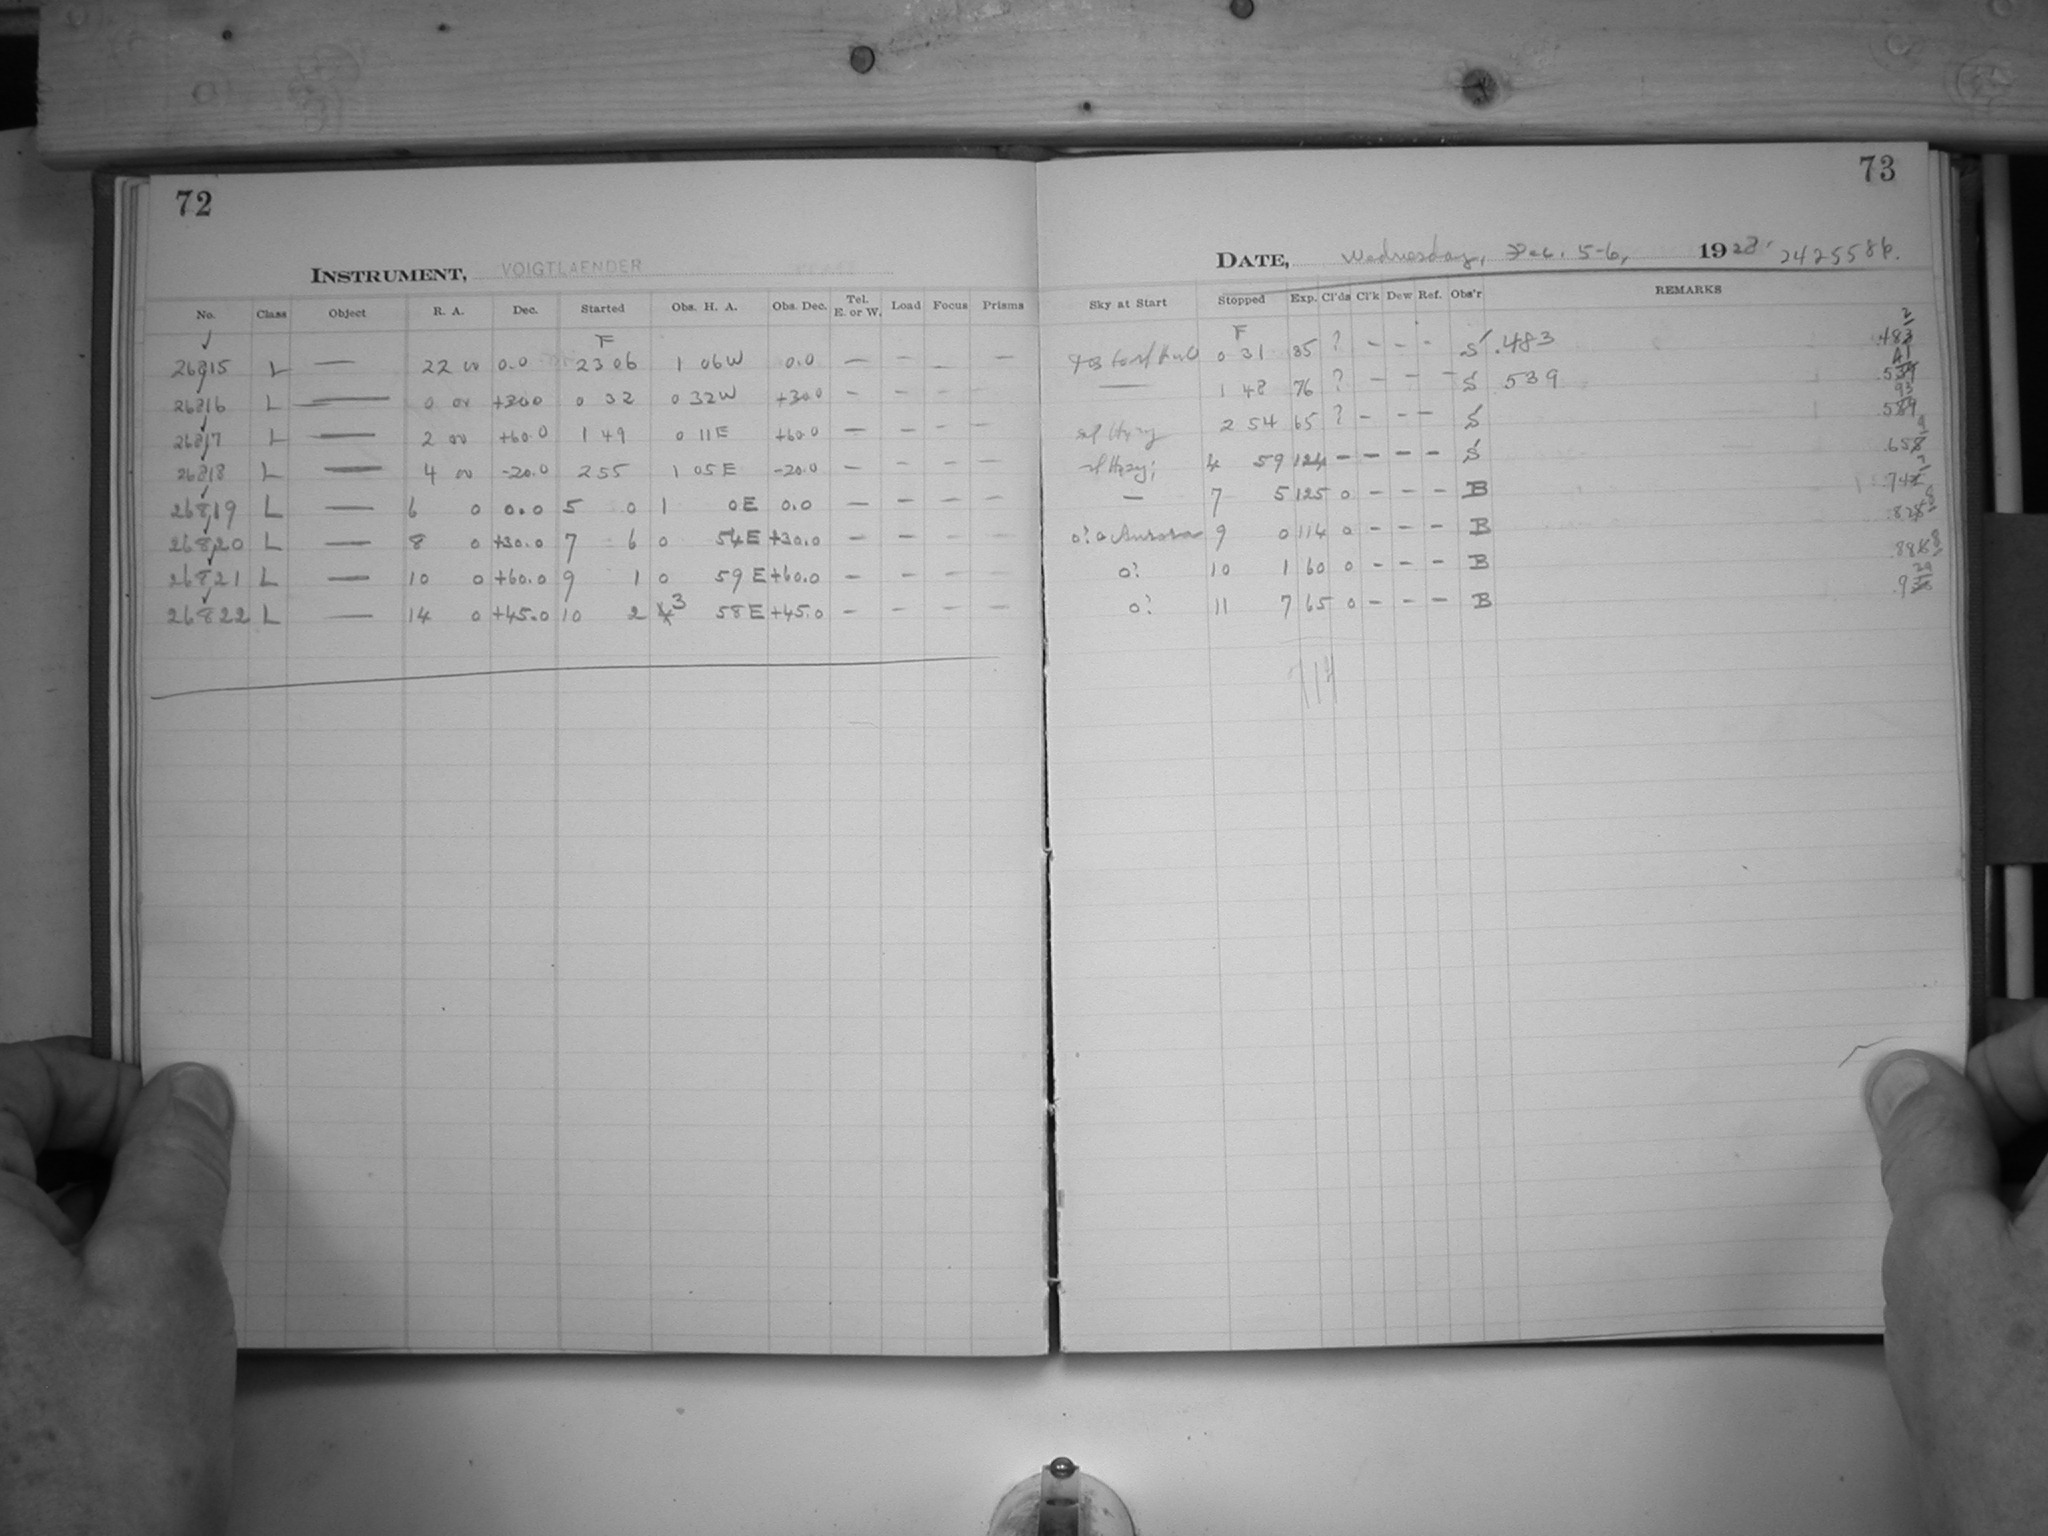 72
INSTRUMENT, VOIGTLAENDER
No. Class Object R. A. Dec. Started Obs. H. A. Obs. Dec. Tel. E. or W. Load Focus Prisms
F
26815 L — 22 00 0.0 23 06 1 06W 0.0 — — — —
26816 L — 0 00 +30.0 0 32 0 32W +30.0 — — — —
26817 L — 2 00 +60.0 1 49 0 11E +60.0 — — — —
26818 L — 4 00 -20.0 2 55 1 05E -20.0 — — — —
26819 L — 6 0 0.0 5 0 1 0E 0.0 — — — —
26820 L — 8 0 +30.0 7 6 0 54E +30.0 — — — —
26821 L — 10 0 +60.0 9 1 0 59E +60.0 — — — —
26822 L — 14 0 +45.0 10 2 3 58E +45.0 — — — —
73
DATE, Wednesday, Dec. 5-6, 1928. 2425586.
Sky at Start Stopped Exp. Cl'ds Cl'k Dew Ref. Obs'r REMARKS
F
0 31 85 ? - - - S .483
— 1 48 76 ? - - - S .539
sl Hazy 2 54 65 ? - - - S
sl Hazy; 4 59 124 - - - - S
— 7 5 125 0 - - - B
0? a Aurora 9 0 114 0 - - - B
0? 10 1 60 0 - - - B
0? 11 7 65 0 - - - B